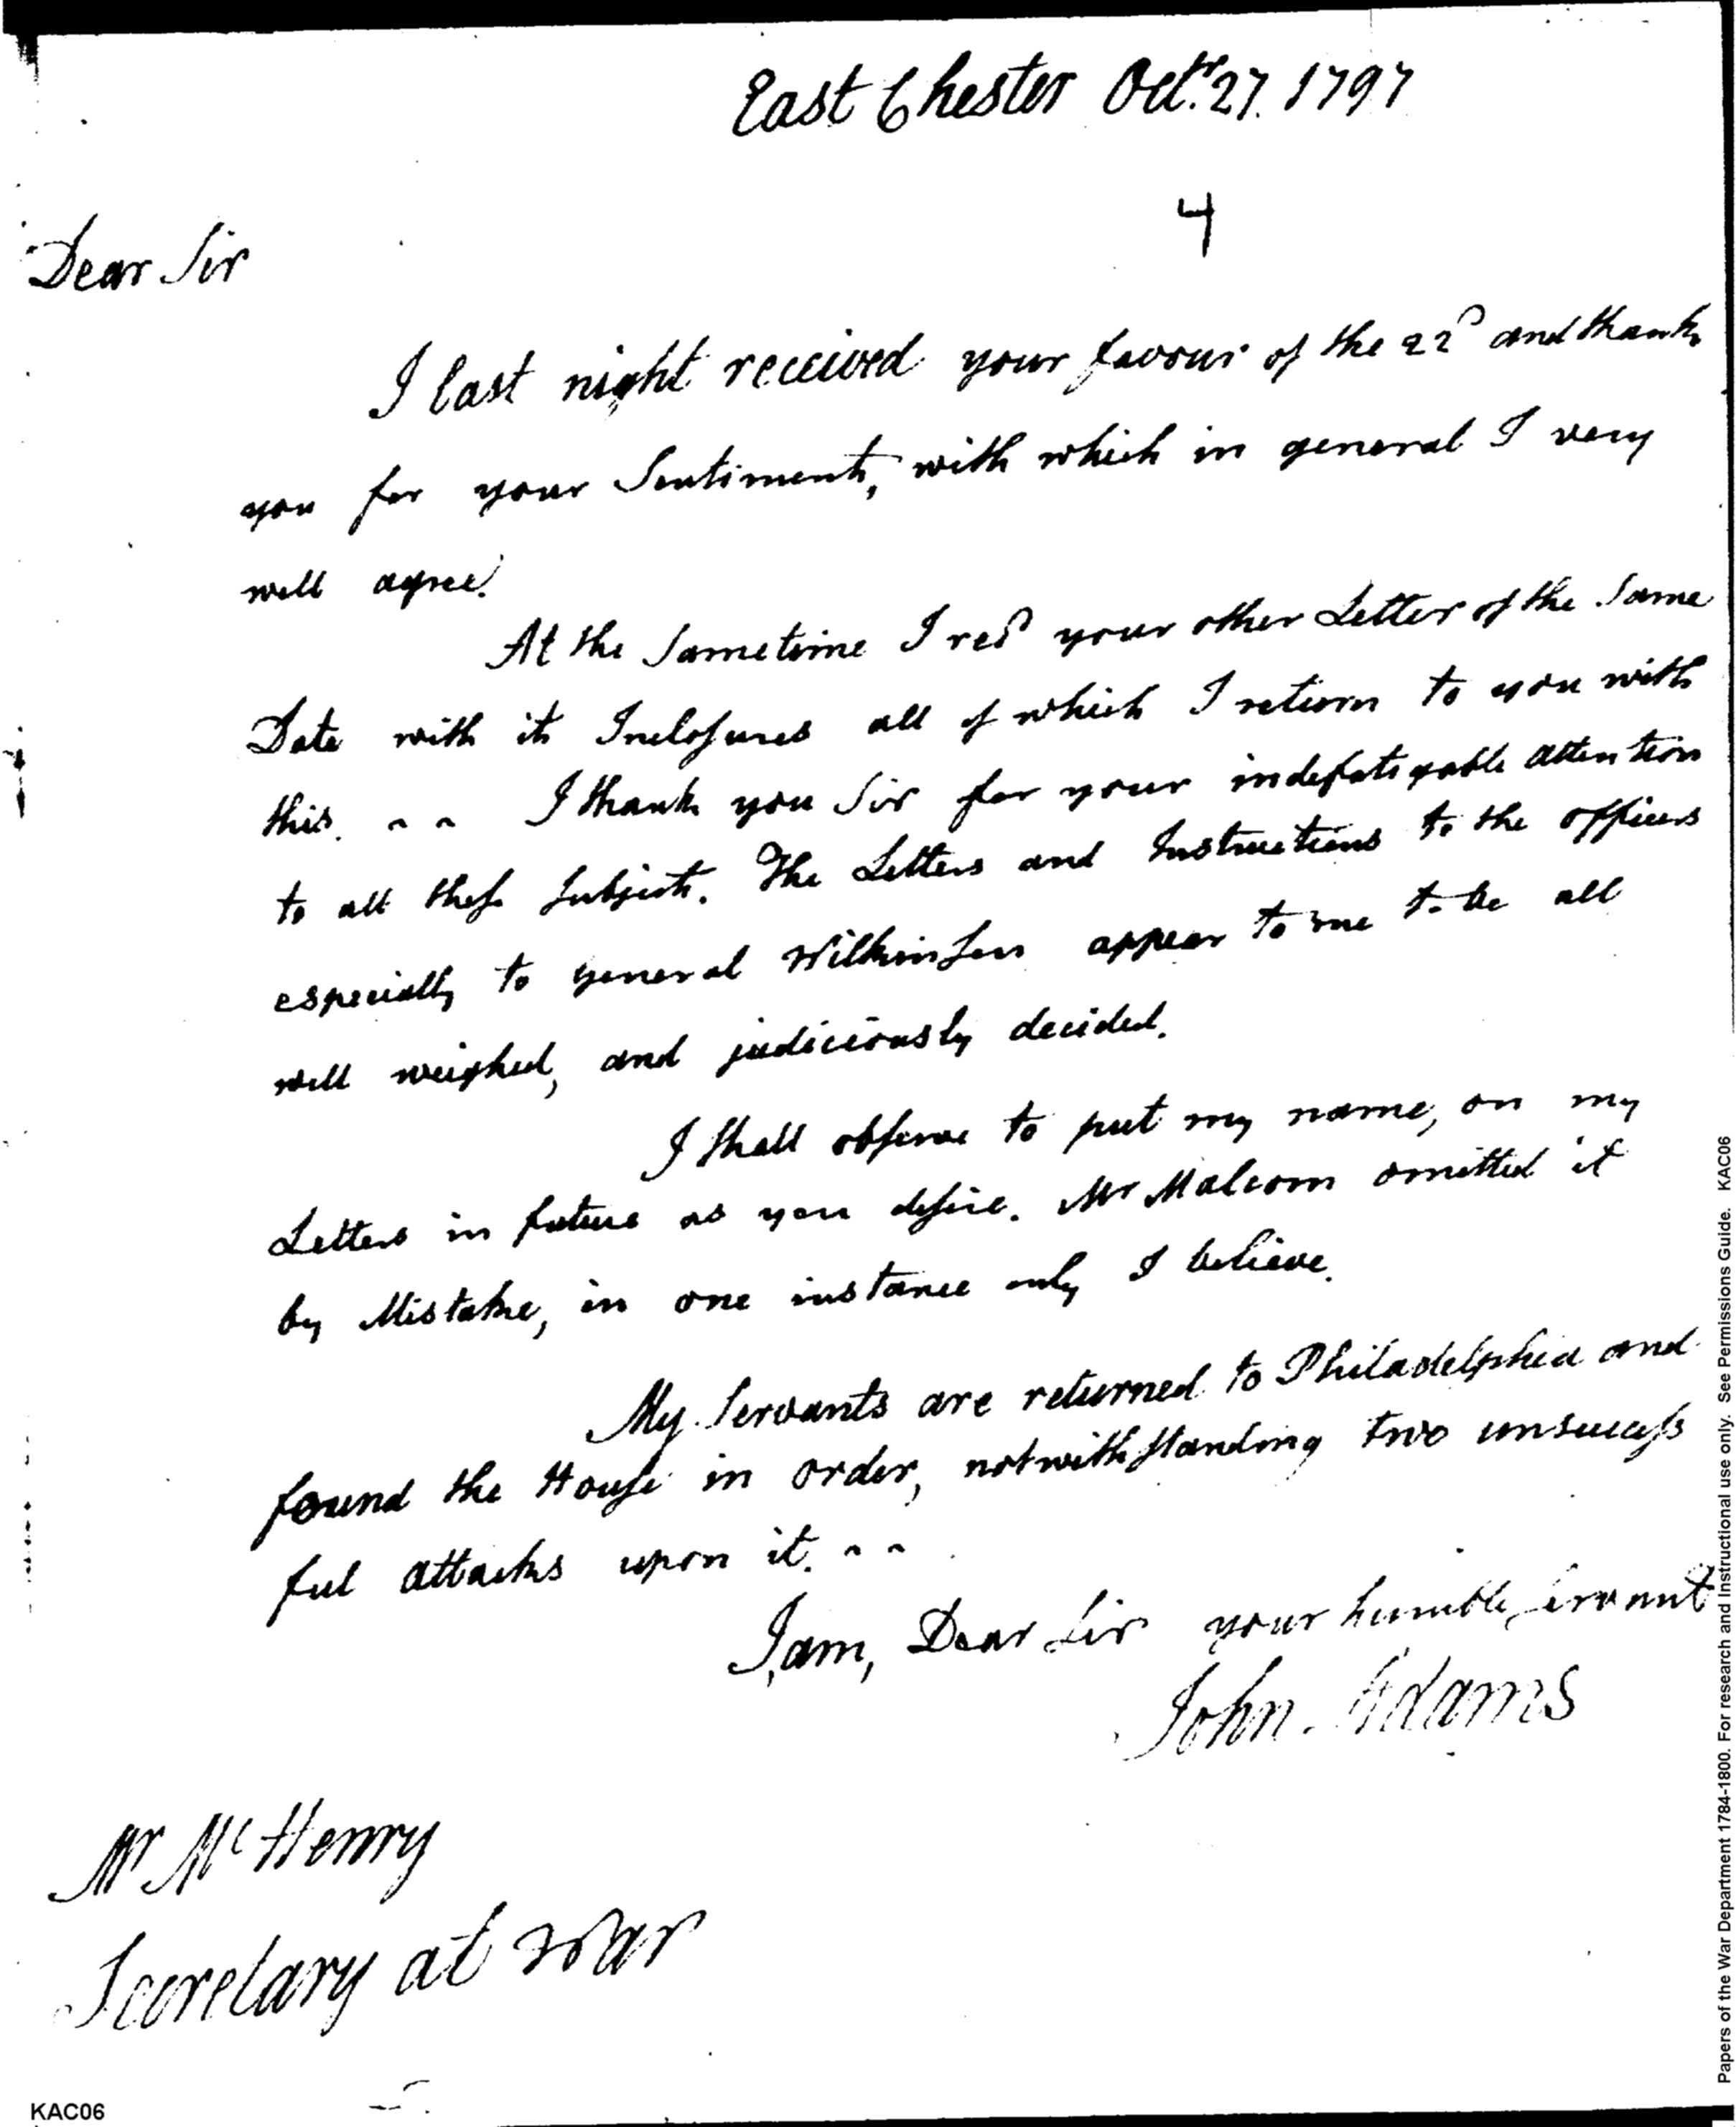 East Chester Octr. 27. 1797
4
Dear Sir
I last night received your favour of the 22d and thank
you for your Sentiments, with which in general I very
well agree.
At the Sametime I recd your other Letter of the Same
Date with its Inclosures all of which I return to you with
this. I thank you Sir for your indefatigable attention
to all these Subjects. The Letters and Instructions to the officers
especially to general Wilkinson appear to me to be all
well weighed, and judiciously decided.
I shall observe to put my name, on my
Letters in future as you desire. Mr Malcom omitted it
by Mistake, in one instance only I believe.
My Servants are returned to Philadelphia and
found the House in order, notwithstanding two unsuccess
ful attacks upon it.
I am, Dear Sir your humble Servant
John Adams
Mr McHenry
Secretary at War
KAC06
Papers of the War Department 1784-1800. For research and Instructional use only. See Permissions Guide. KAC06